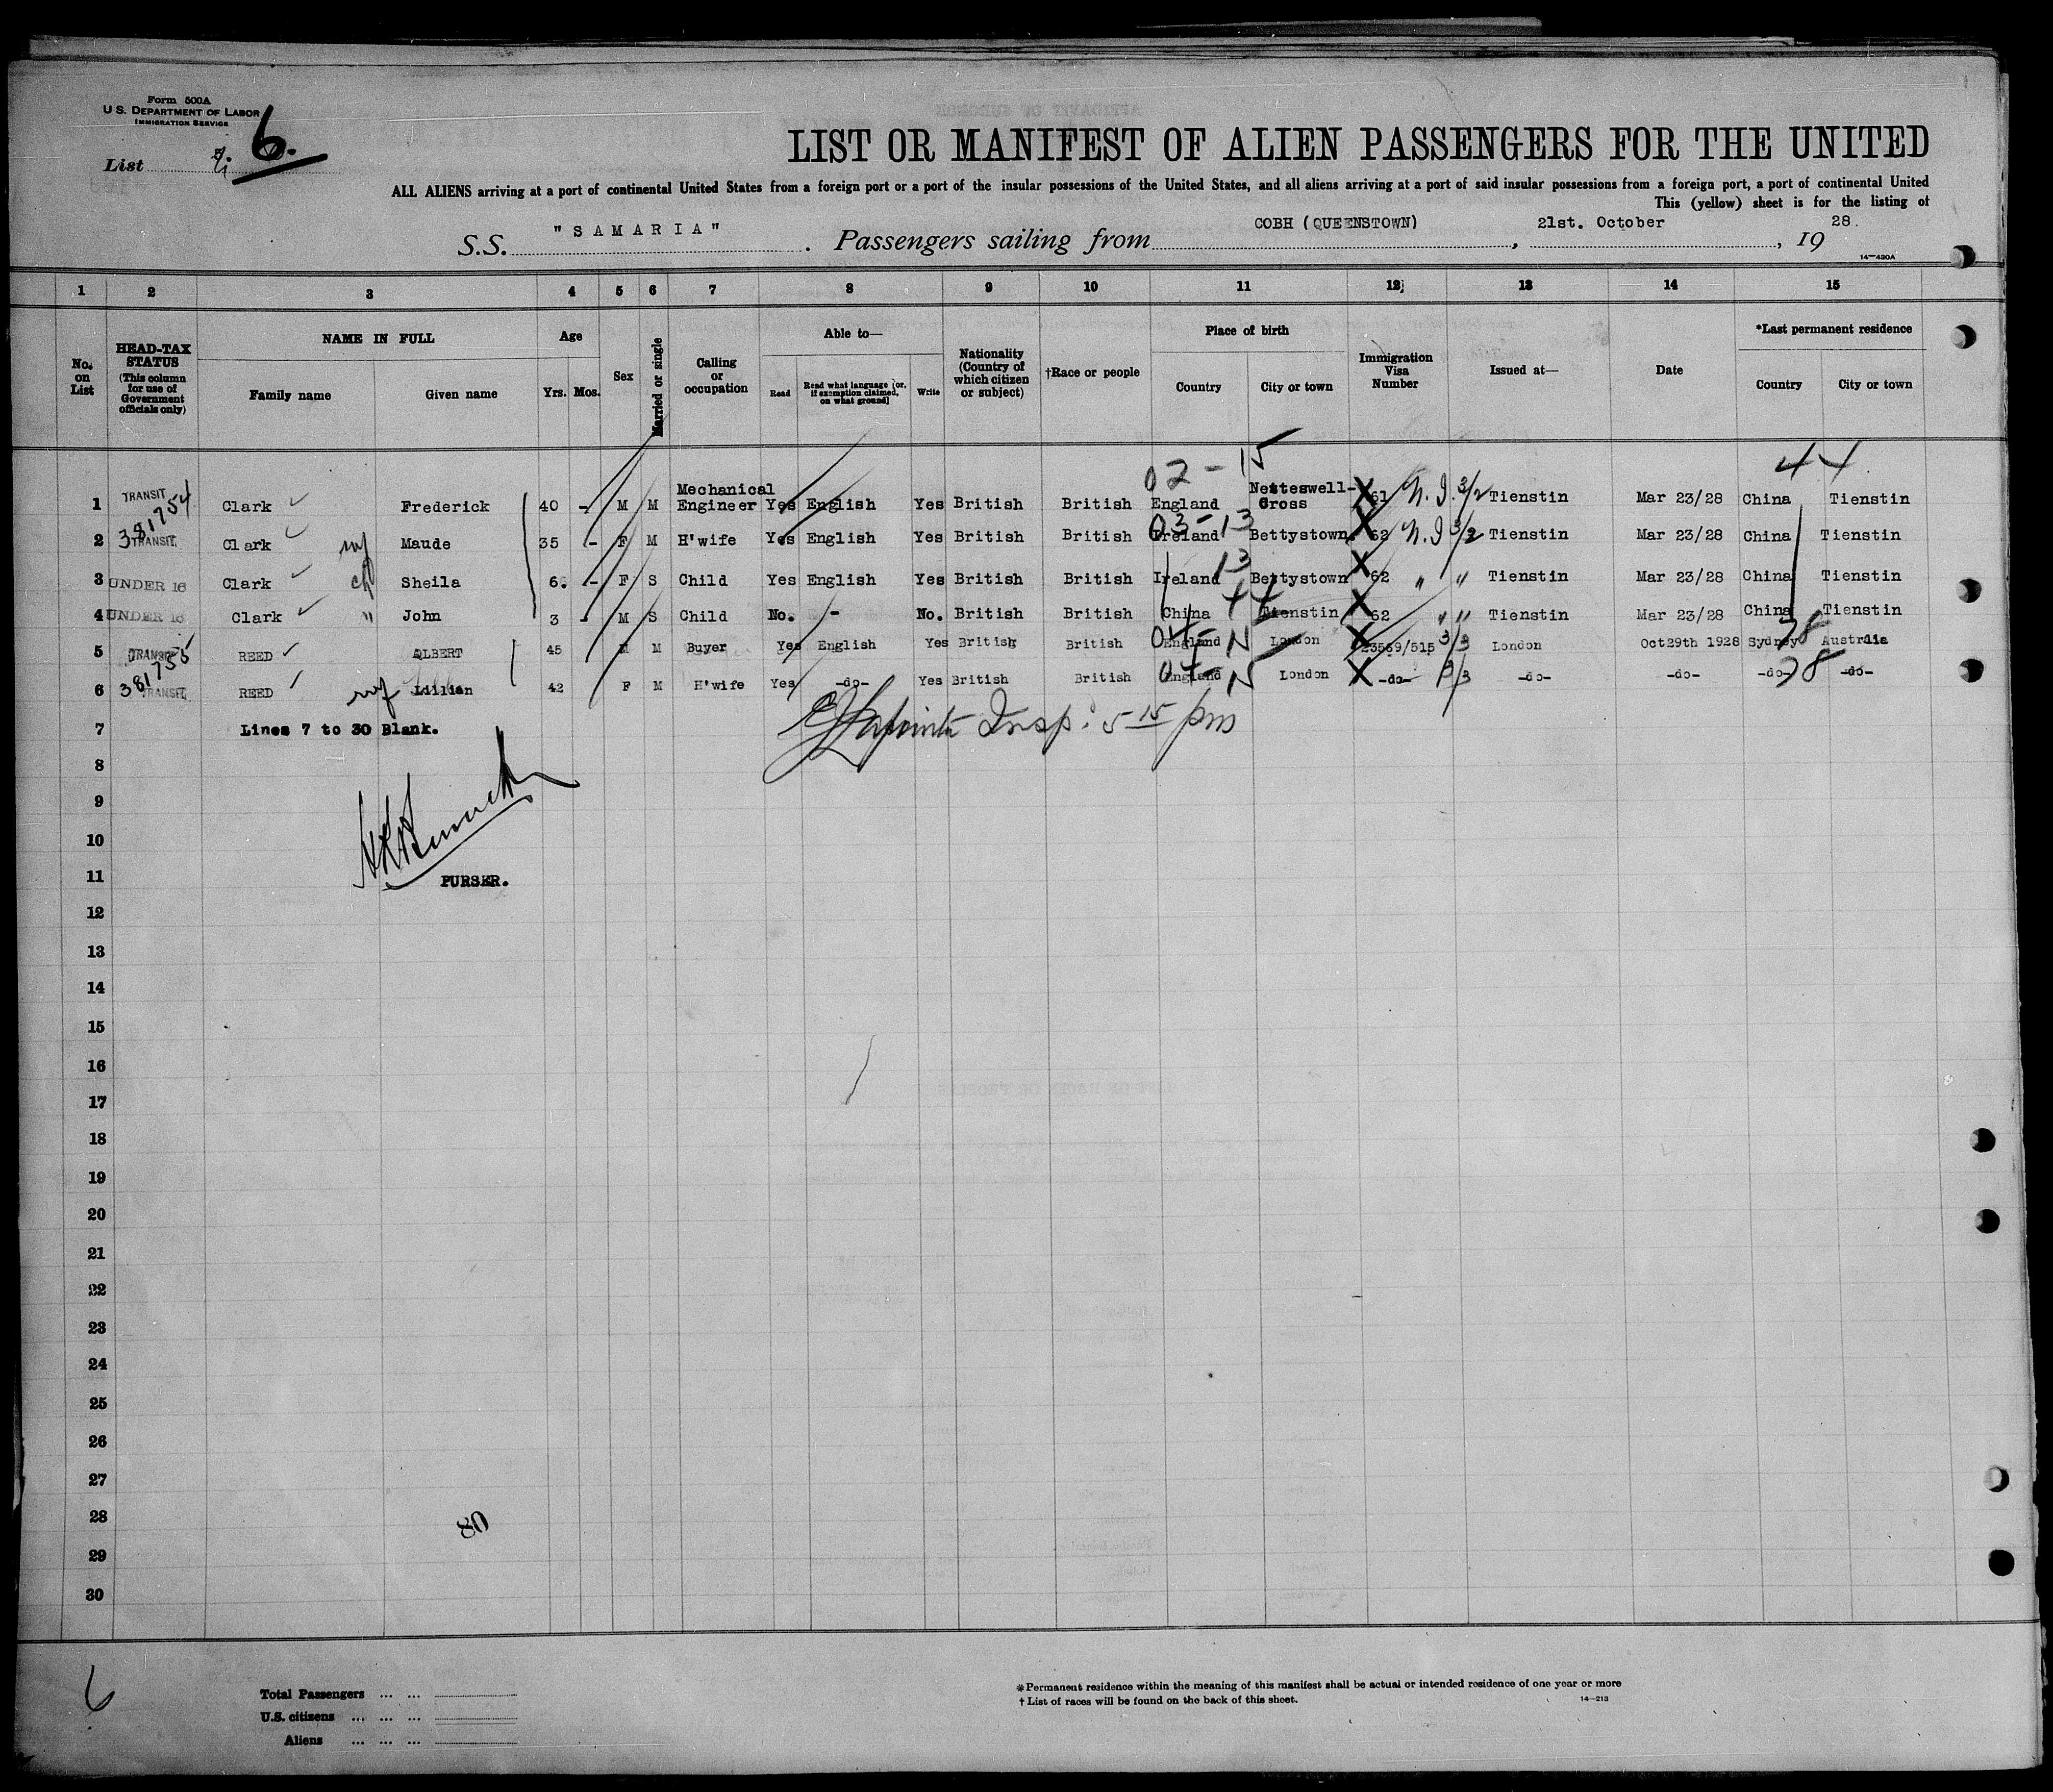 Form 500A
U.S. DEPARTMENT OF LABOR
IMMIGRATION SERVICE
List 6.
LIST OR MANIFEST OF ALIEN PASSENGERS FOR THE UNITED
ALL ALIENS arriving at a port of continental United States from a foreign port or a port of the insular possessions of the United States, and all aliens arriving at a port of said insular possessions from a foreign port, a port of continental United
This (yellow) sheet is for the listing of
S.S. "SAMARIA". Passengers sailing from COBH (QUEENSTOWN), 21st. October, 19 28.
14—430A
1 2 3 4 5 6 7 8 9 10 11 12 13 14 15
No. on List
HEAD-TAX STATUS
(This column for use of Government officials only)
NAME IN FULL
Family name Given name
Age
Yrs. Mos.
Sex
Married or single
Calling or occupation
Able to—
Read Read what language [or, if exemption claimed, on what ground] Write
Nationality (Country of which citizen or subject)
†Race or people
Place of birth
Country City or town
Immigration Visa Number
Issued at—
Date
*Last permanent residence
Country City or town
02-15 44
1 TRANSIT 381754 Clark Frederick 40 - M M Mechanical Engineer Yes English Yes British British England Netteswell-Cross X 61 N.I. 3/2 Tienstin Mar 23/28 China Tienstin
2 TRANSIT Clark wf Maude 35 - F M H'wife Yes English Yes British British 03-13 Ireland Bettystown X 62 N.I 3/2 Tienstin Mar 23/28 China Tienstin
3 UNDER 16 Clark ch Sheila 6. - F S Child Yes English Yes British British Ireland 13 Bettystown X 62 " " Tienstin Mar 23/28 China Tienstin
4 UNDER 16 Clark " John 3 - M S Child No. - No. British British China 44 Tienstin X 62 " " Tienstin Mar 23/28 China Tienstin
5 TRANSIT 381755 REED ALBERT 45 M M Buyer Yes English Yes British British 04-N England London X 23559/515 3/3 London Oct29th 1928 Sydney 78 Australia
6 TRANSIT REED wf Lillian 42 F M H'wife Yes -do- Yes British British 04 N England London X -do- 3/3 -do- -do- -do- 78 -do-
7 Lines 7 to 30 Blank.
Insp. 5 15 pm
8
9
10
11 PURSER.
12
13
14
15
16
17
18
19
20
21
22
23
24
25
26
27
28 80
29
30
6
Total Passengers ... ...
U.S. citizens ... ... ...
Aliens ... ... ...
*Permanent residence within the meaning of this manifest shall be actual or intended residence of one year or more
†List of races will be found on the back of this sheet.
14—213